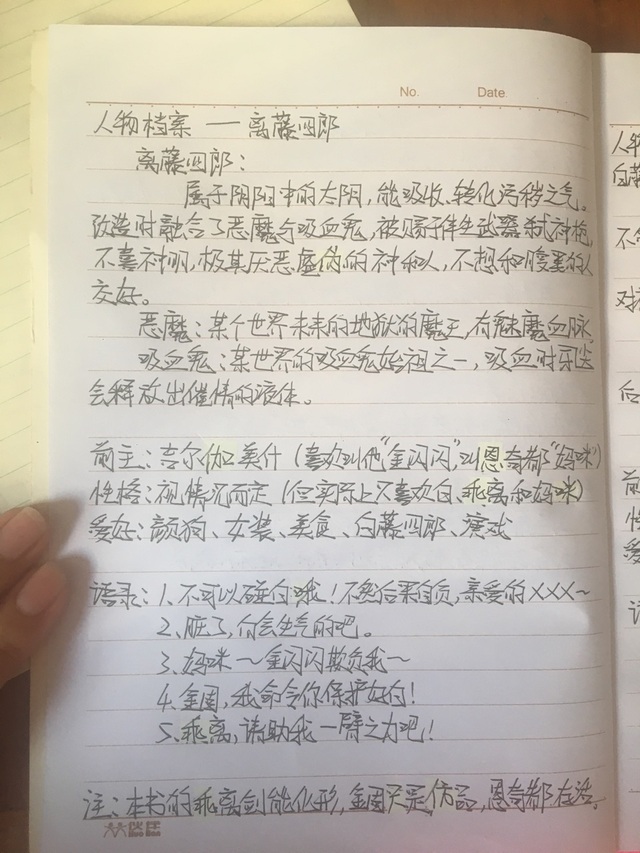 No.
Date
人物档案 — 离藤四郎
离藤四郎:
属于阴阳中的太阴,能吸收、转化污秽之气。
改造时融合了恶魔与吸血鬼,被赐予伴生武器弑神枪,
不喜神明,极其厌恶虚伪的神和人,不想和腹黑的人
交好。
恶魔:某个世界未来的地狱的魔王,有魅魔血脉
吸血鬼:某世界的吸血鬼始祖之一,吸血时牙尖
会释放出催情的液体。
前主:吉尔伽美什(喜欢叫他“金闪闪”,叫恩奇都“妈咪”)
性格:视情况而定(但实际上只喜欢白、乖离和妈咪)
爱好:颜狗、女装、美食、白藤四郎、演戏
语录:1.不可以碰白哦!不然后果自负,亲爱的XXX~
2.脏了,白会生气的吧。
3.妈咪~金闪闪欺负我~
4.金固,我命令你保护好白!
5.乖离,请助我一臂之力吧!
注:本书的乖离剑能化形,金固只是仿品,恩奇都在活。
人物
白藤
不
对
后
前
性
爱
语